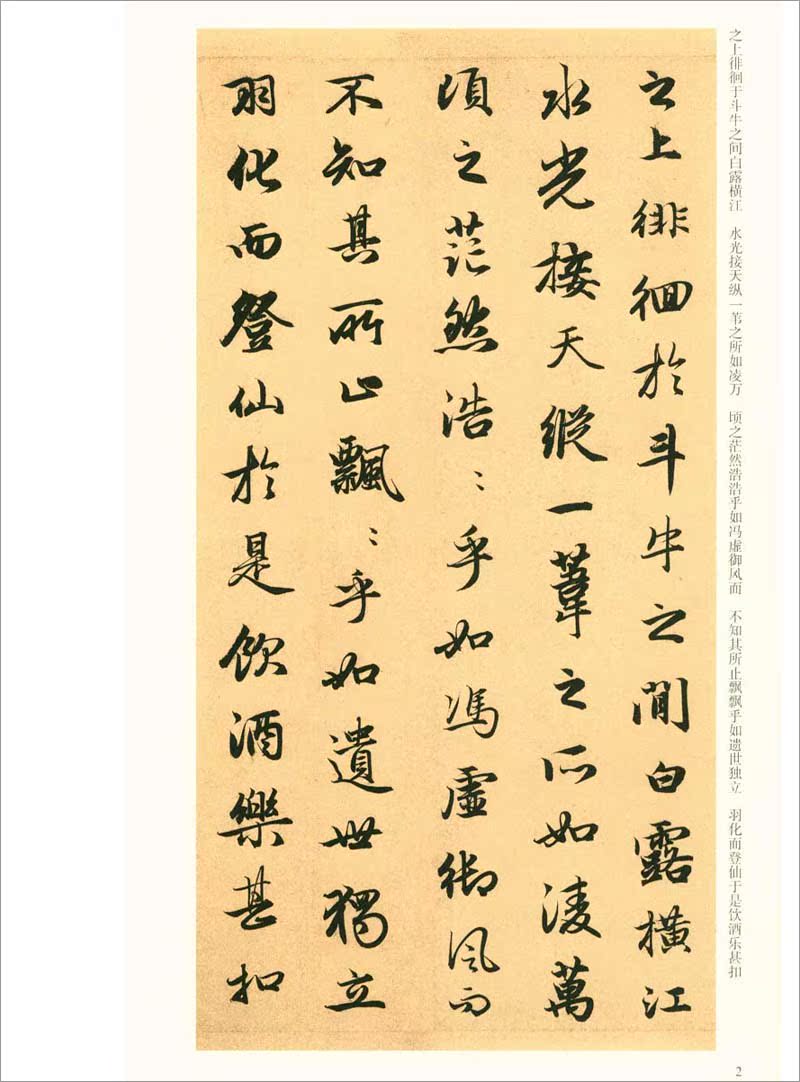 之上徘徊于斗牛之间白露横江 水光接天纵一苇之所如凌万 顷之茫然浩浩乎如冯虚御风而 不知其所止飘飘乎如遗世独立 羽化而登仙于是饮酒乐甚扣
之上徘徊於斗牛之間白露橫江
水光接天縱一葦之所如凌萬
頃之茫然浩〻乎如馮虛御風而
不知其所止飄〻乎如遺世獨立
羽化而登仙於是飲酒樂甚扣
2